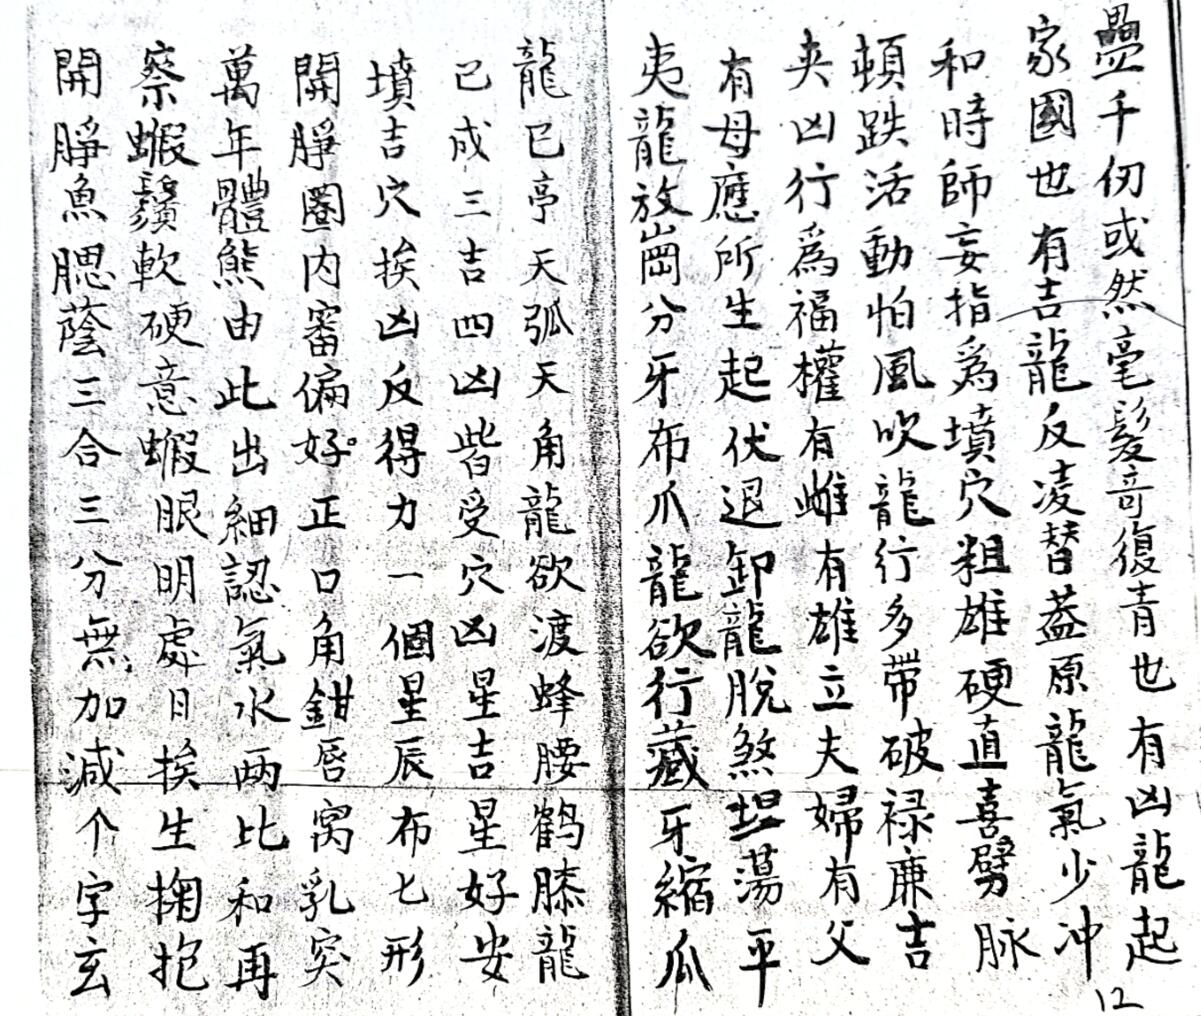 疊千仞或然毫髮奇復青也有凶龍起
家國也有吉龍反凌替蓋原龍氣少冲
和時師妄指爲墳穴粗雄硬直喜劈脉
頓跌活動怕風吹龍行多帶破祿廉吉
夹凶行爲福權有雌有雄立夫婦有父
有母應所生起伏退卸龍脫煞坦蕩平
夷龍放崗分牙布爪龍欲行藏牙縮爪
12
龍巳亭天弧天角龍欲渡蜂腰鶴膝龍
已成三吉四凶皆受穴凶星吉星好安
墳吉穴挨凶反得力一個星辰布七形
開睜圈内審偏好。正口角鉗唇窩乳突
萬年體熊由此出細認氣水两比和再
察蝦鬚軟硬意蝦眼明處目挨生掬抱
開睜魚腮蔭三合三分無加減个字玄